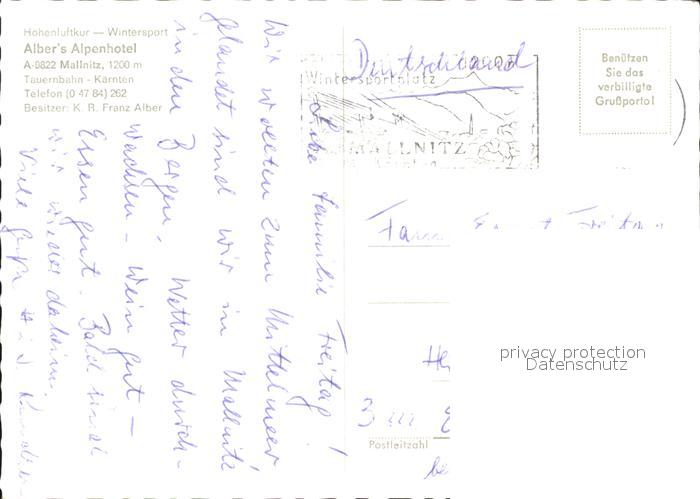 Höhenluftkur — Wintersport
Alber's Alpenhotel
A-9822 Mallnitz, 1200 m
Tauernbahn - Kärnten
Telefon (0 47 84) 262
Besitzer: K. R. Franz Alber
Liebe Familie Freitag!
Wir wollten zum Mittelmeer
gelandet sind wir in Mallnitz
in den Bergen, Wetter durch-
wachsen - Wein gut -
Essen gut. Bald sind
wir wieder daheim.
Viele Grüße
Deutschland
Wintersportplatz
MALLNITZ
Benützen
Sie das
verbilligte
Grußporto!
Fam. Freitag
privacy protection
Datenschutz
Postleitzahl